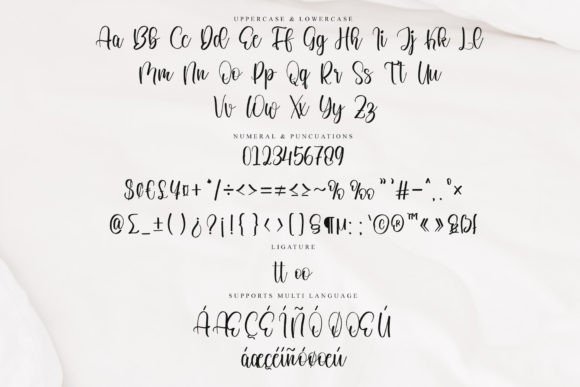 UPPERCASE & LOWERCASE
Aa Bb Cc Dd Ee Ff Gg Hh Ii Jj Kk Ll
Mm Nn Oo Pp Qq Rr Ss Tt Uu
Vv Ww Xx Yy Zz
NUMERAL & PUNCUATIONS
0123456789
$¢€£¥¤+*/÷<>=≠≤≥~%‰"'#-^.,°×
@Σ_±()¿?¡!{}‹›[]§¶µ:;'©®™«»
LIGATURE
tt oo
SUPPORTS MULTI LANGUAGE
ÁÆÇÉÍÑÓØŒÚ
áæçéíñóøœú